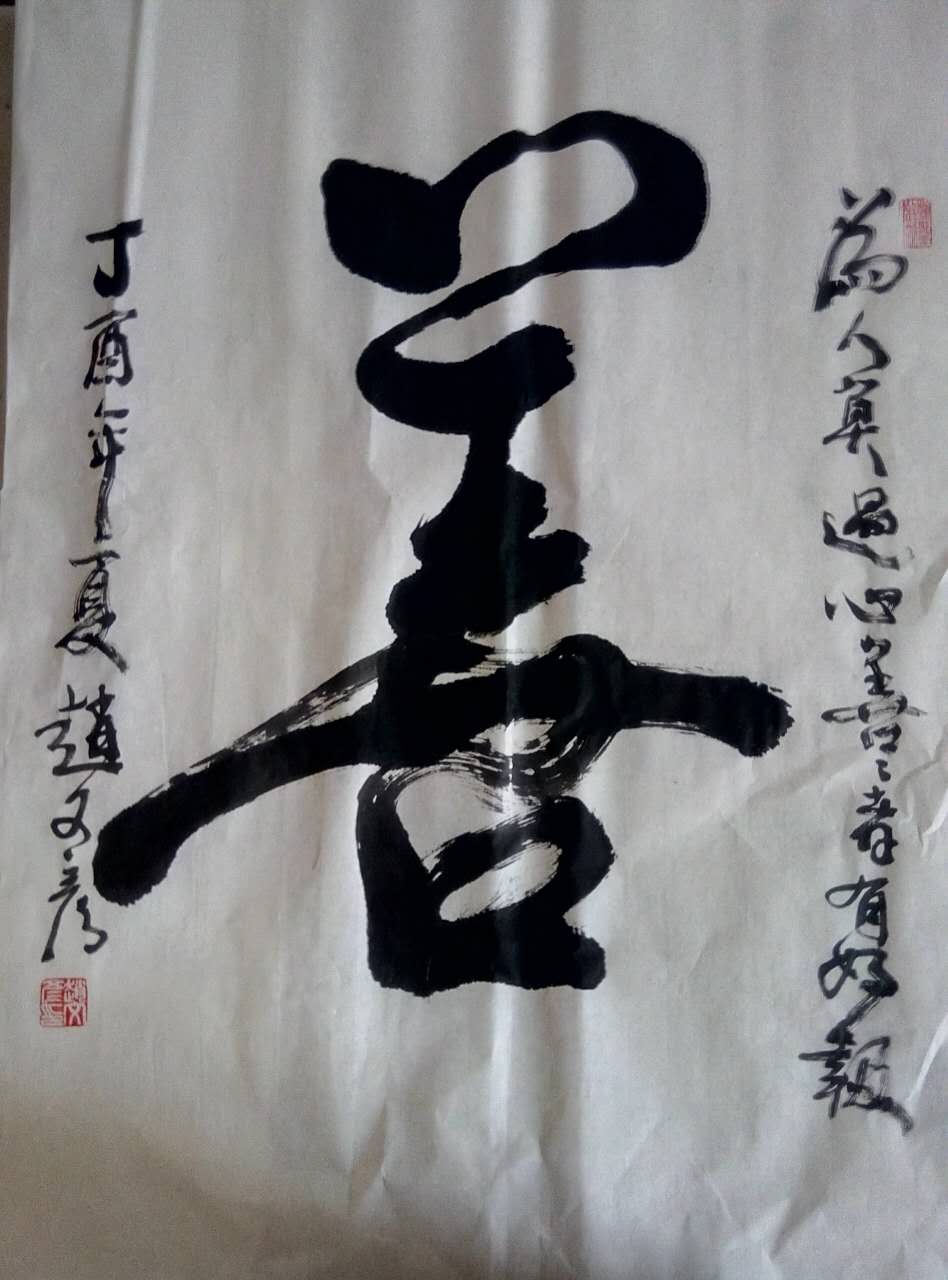 為人莫過心善善者有好報
善
丁酉年夏趙文彥